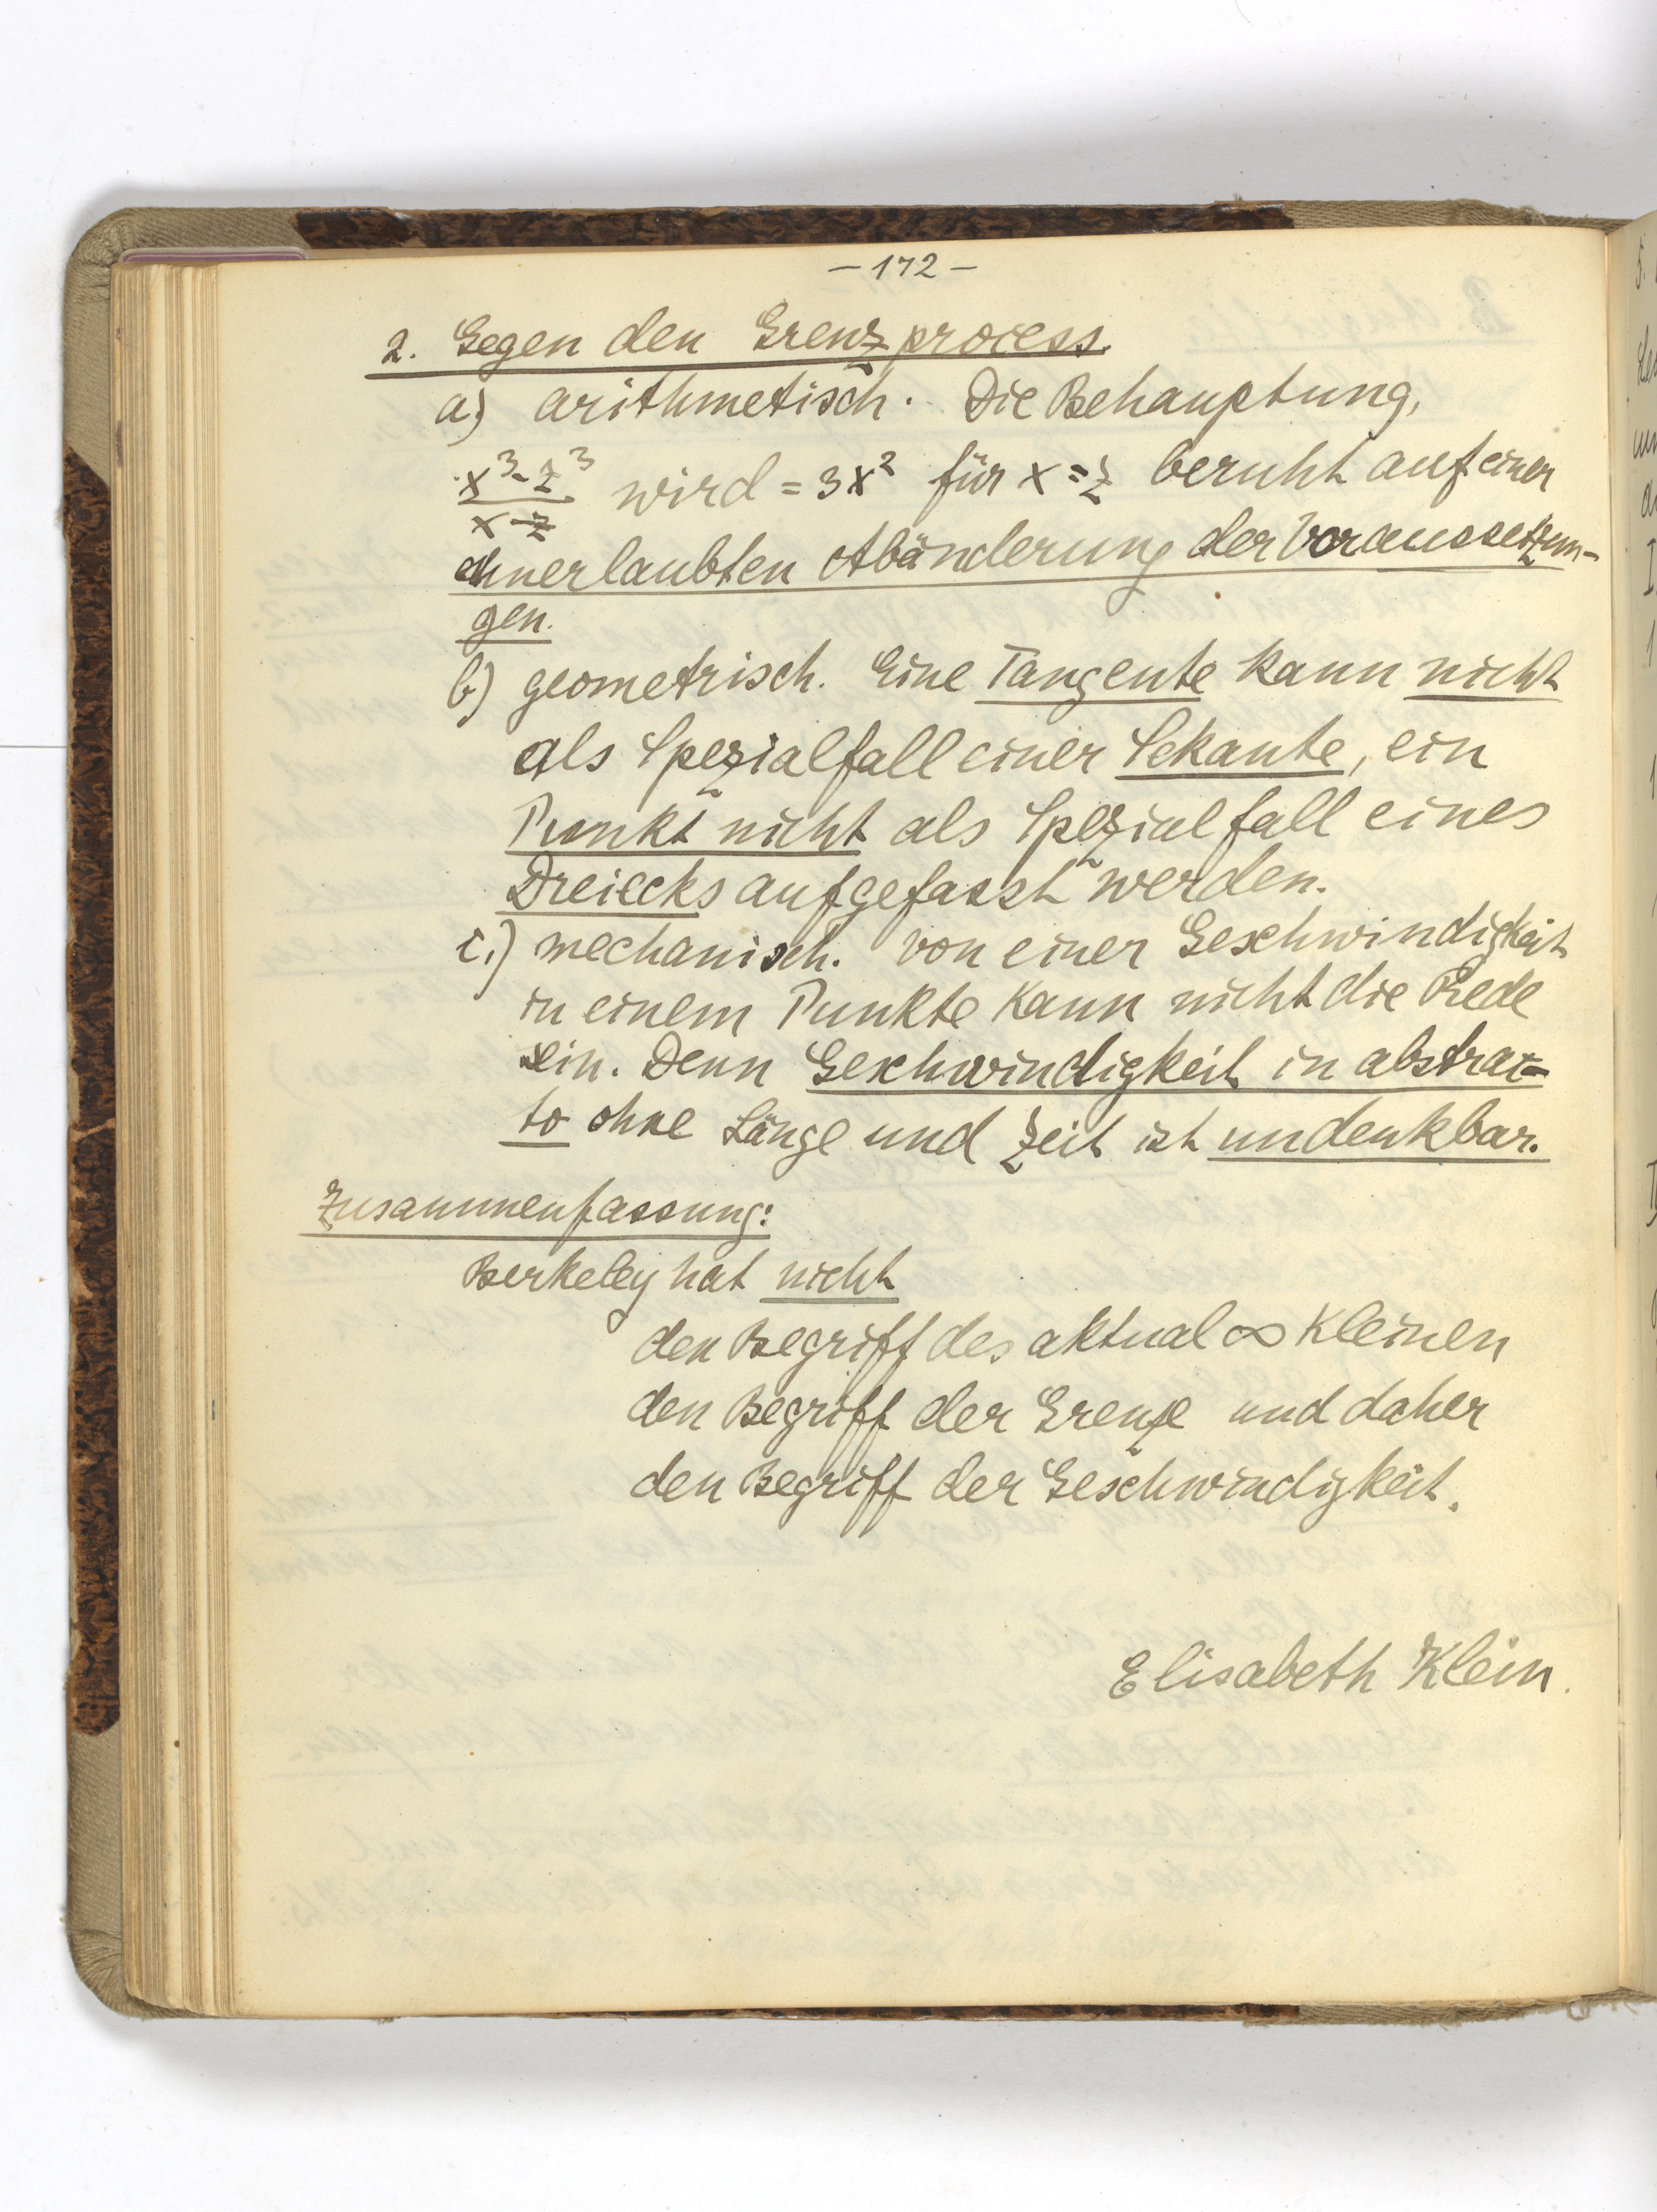 – 172 –
2. Gegen den Grenzprocess.
a) arithmetisch. Die Behauptung,
(x³-z³)/(x-z) wird = 3x² für x = z beruht auf einer
unerlaubten Abänderung der Voraussetzun-
gen.
b) geometrisch. Eine Tangente kann nicht
als Spezialfall einer Sekante, ein
Punkt nicht als Spezialfall eines
Dreiecks aufgefasst werden.
c.) mechanisch. von einer Geschwindigkeit
in einem Punkte kann nicht die Rede
sein. Denn Geschwindigkeit in abstrac-
to ohne Länge und Zeit ist undenkbar.
Zusammenfassung:
Berkeley hat nicht
den Begriff des aktual ∞ Kleinen
den Begriff der Grenze und daher
den Begriff der Geschwindigkeit.
Elisabeth Klein.